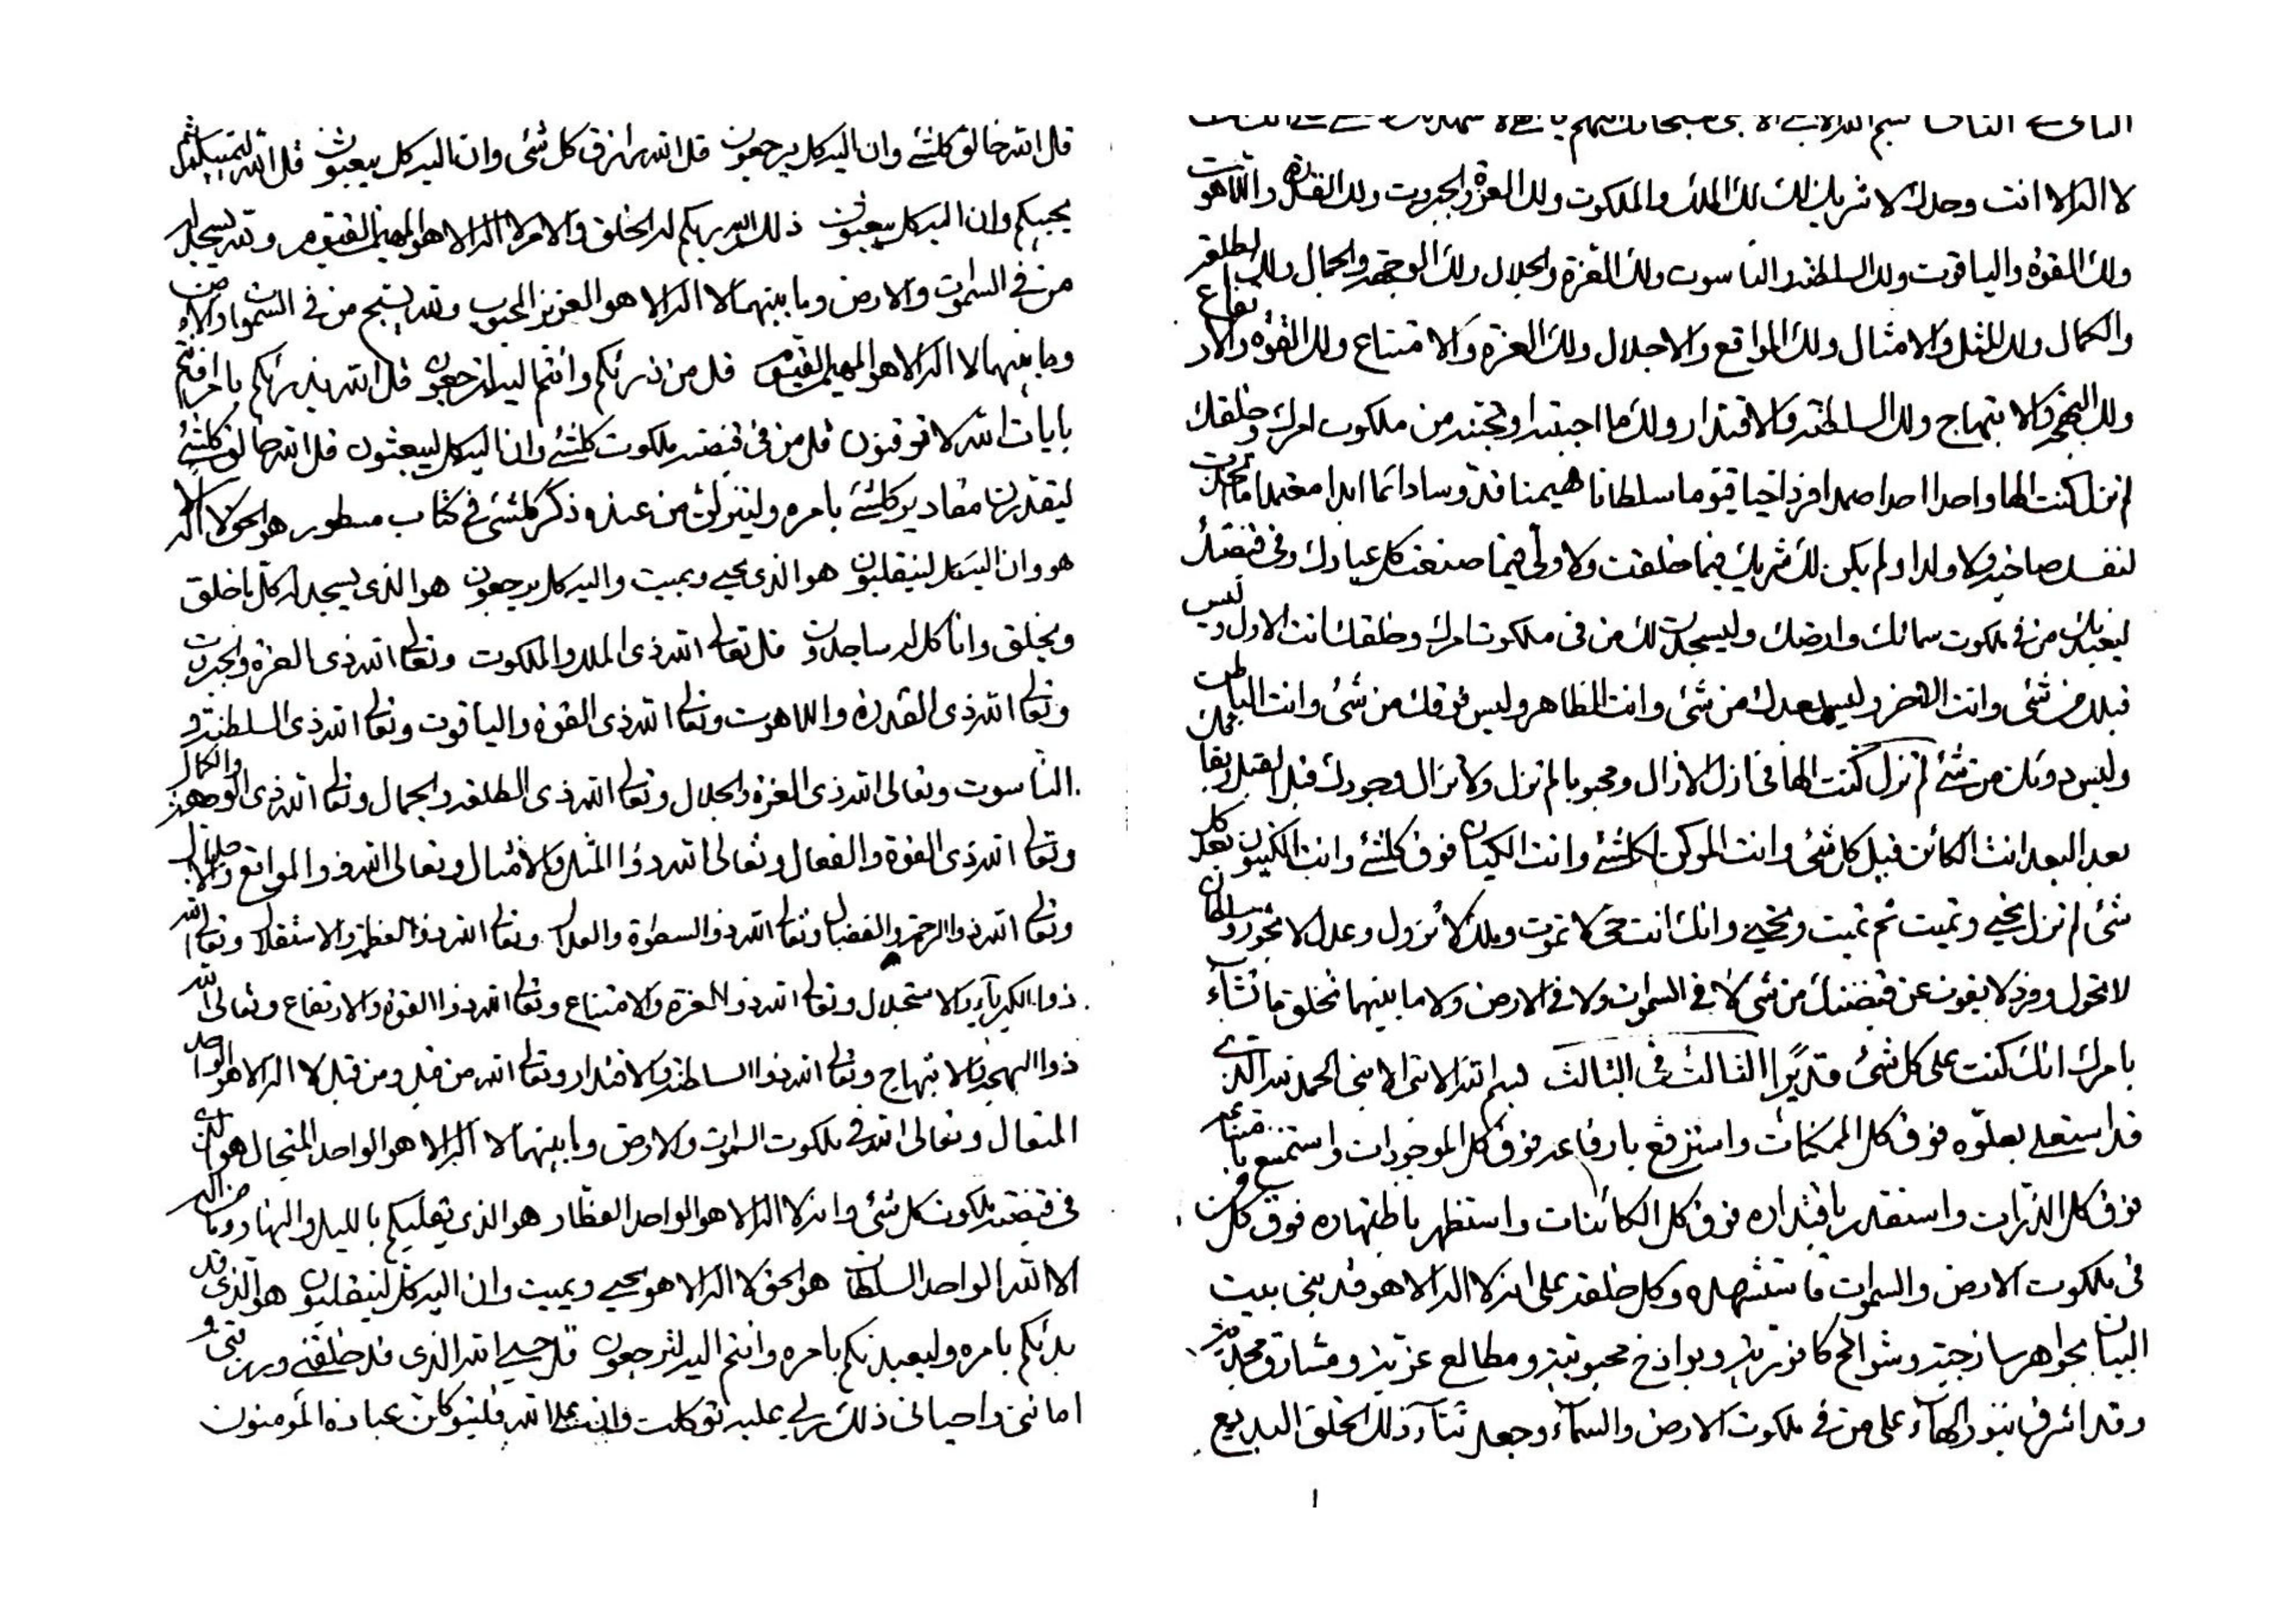 لا اله الا انت وحدك لا شريك لك لك الملك والملكوت ولك العزة والجبروت ولك القدرة واللاهوت
ولك القوة والياقوت ولك السلطنة والناسوت ولك العزة والجلال ولك الوجهة والجمال ولك الطلعة
والكمال ولك المثل والامثال ولك المواقع والاجلال ولك العزة والامتناع ولك القوة والارتفاع
ولك البهجة والابتهاج ولك السلطنة والاقتدار ولك ما احببته او تحبنه من ملكوت امرك وخلقك
لم تزل كنت الها واحدا احدا صمدا فردا حيا قيوما سلطانا مهيمنا قدوسا دائما ابدا معتمدا ما اتخذت
لنفسك صاحبة ولا ولدا ولم يكن لك شريك فيما خلقت ولا ولي فيما صنعت كل عبادك وفي قبضتك
ليعبدنك من في ملكوت سمائك وارضك وليسجدن لك من في ملكوت امرك وخلقك انت الاول وليس
قبلك من شئ وانت الاخر وليس بعدك من شئ وانت الظاهر وليس فوقك من شئ وانت الباطن
وليس دونك من شئ لم تزل كنت الها في ازل الازال ومحبوبا لم تزل ولا تزال وجودك قبل القبل وبقائك
بعد البعد انت الكائن قبل كل شئ وانت المكون لكلشئ وانت الكيان فوق كلشئ وانت الكينون بعد كل
شئ لم تزل تحيي وتميت ثم تميت وتحيي وانك انت حي لا تموت وملك لا تزول وعدل لا تجور وسلطان
لا تحول وفرد لا يفوت عن قبضتك من شئ لا في السموات ولا في الارض ولا ما بينهما تخلق ما تشآء
بامرك انك كنت على كل شئ قديرا الثالث في الثالث بسم الله الابهى الابهى الحمد لله الذي
قد استعلى بعلوه فوق كل الممكنات واسترفع بارفاعه فوق كل الموجودات واستمنع بامتناعه
فوق كل الذرات واستقدر باقتداره فوق كل الكائنات واستظهر باظهاره فوق كل من
في ملكوت الارض والسموات فاستشهده وكل خلقه على انه لا اله الا هو قد بنى بيت
البيان بجواهر ساذجية وشوامخ كافورية وبواذخ محبوبية ومطالع عزيزة ومشارق مجدية
وقد اشرق بنور البهآء على من في ملكوت الارض والسمآء وجعل ثنآء ذلك الخلق البديع
۱
قل الله خالق كلشئ وان اليه كل يرجعون قل الله رازق كل شئ وان اليه كل يبعثون قل الله ليميتنكم ثم
يحييكم وان اليه كل يبعثون ذلك الله ربكم له الخلق والامر لا اله الا هو المهيمن القيوم ولله يسجد
من في السموات والارض وما بينهما لا اله الا هو العزيز المحبوب ولله يسبح من في السموات والارض
وما بينهما لا اله الا هو المهيمن القيوم قل من ذرئكم وانتم اليه لترجعون قل الله يذرئكم بامره افانتم
بايات الله لا توقنون قل من في قبضته ملكوت كلشئ وانا اليه كل ليبعثون قل الله خالق كلشئ
ليقدرن مقادير كلشئ بامره ولينزلن من عنده ذكر كلشئ في كتاب مسطور هو الحق لا اله الا
هو وان اليه كل لينقلبون هو الذي يحيي ويميت واليه كل يرجعون هو الذي يسجد له كل ما خلق
ويخلق وانا كل له ساجدون قل تعالى الله ذي الملك والملكوت وتعالى الله ذي العزة والجبروت
وتعالى الله ذي القدرة واللاهوت وتعالى الله ذي القوة والياقوت وتعالى الله ذي السلطنة و
الناسوت وتعالى الله ذي العزة والجلال وتعالى الله ذي الطلعة والجمال وتعالى الله ذي الوجهة والكمال
وتعالى الله ذي القوة والفعال وتعالى الله ذو المثل والامثال وتعالى الله ذو المواقع والاجلال
وتعالى الله ذو الرحمة والفضال وتعالى الله ذو السطوة والعدال وتعالى الله ذو العظمة والاستقلال وتعالى الله
ذو الكبريآء والاستجلال وتعالى الله ذو العزة والامتناع وتعالى الله ذو القوة والارتفاع وتعالى الله
ذو البهجة والابتهاج وتعالى الله ذو السلطنة والاقتدار وتعالى الله من قبل ومن قبل لا اله الا هو الواحد
المتعال وتعالى الله في ملكوت السموات والارض وما بينهما لا اله الا هو الواحد المتجال هو الذي
في قبضته ملكوت كل شئ وانه لا اله الا هو الواحد العظار هو الذي يقلبكم بالليل والنهار وما من اله
الا الله الواحد السلطان هو الحق لا اله الا هو يحيي ويميت وان اليه كل لينقلبون هو الذي قد
بدئكم بامره وليعيدنكم بامره وانتم اليه لترجعون قل حسبي الله الذي قد خلقني ورزقني و
اماتني واحياني ذلك ربي عليه توكلت وان على الله فليتوكلن عباده المؤمنون